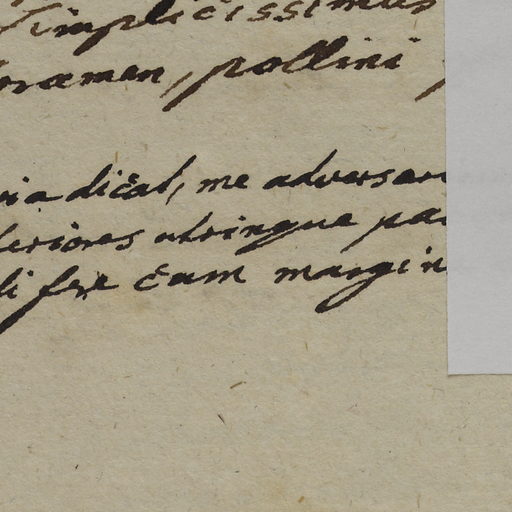 simplicissimus
foramen, pollini
via dicat, me adversar
teriores utrinque pa
li fere cum margin